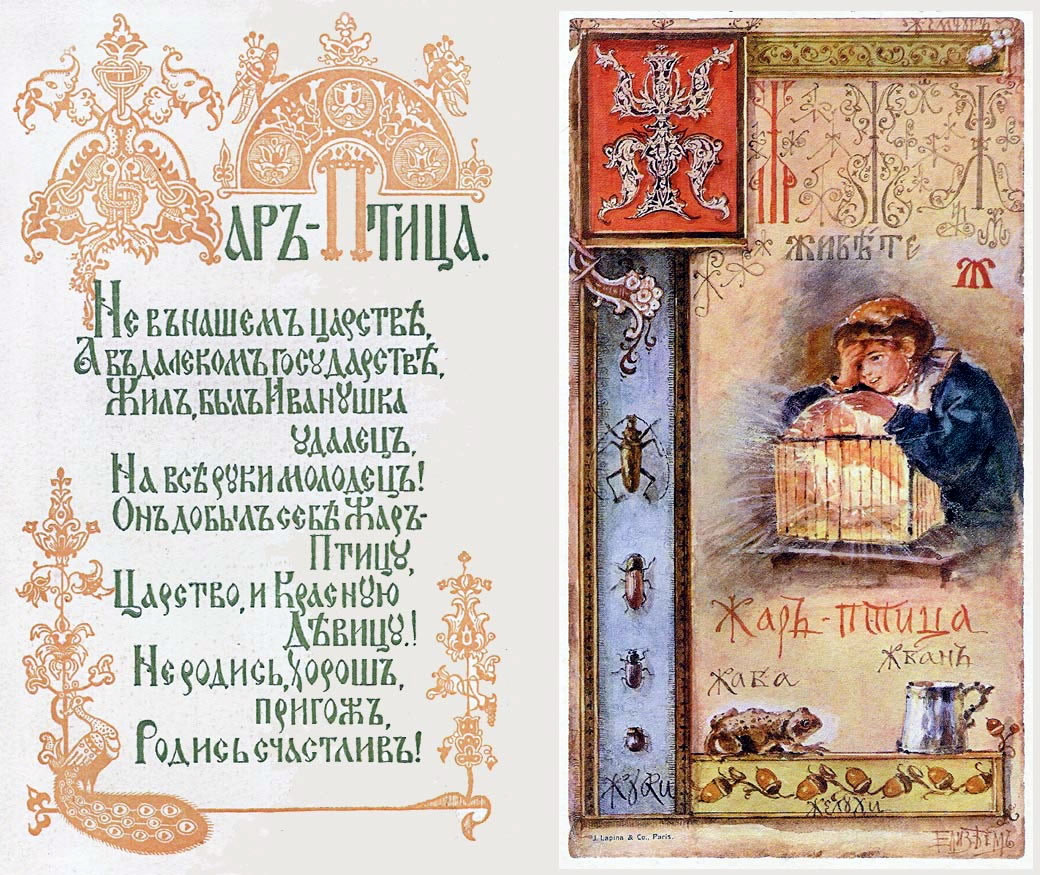 ЖАРЪ-ПТИЦА.
Не въ нашемъ царствѣ,
А въ далекомъ государствѣ,
Жилъ, былъ Иванушка
удалецъ,
На всѣ руки молодецъ!
Онъ добылъ себѣ Жаръ-
Птицу,
Царство, и Красную
Дѣвицу!
Не родись, хорошъ,
пригожъ,
Родись счастливъ!
Жемчугъ
Ж
Ж Ж Ж
ЖИВѢТЕ
Ж
Жаръ-птица
Жбанъ
Жаба
Жуки
Жёлуди
J. Lapina & Co., Paris.
Елизъ Бёмъ